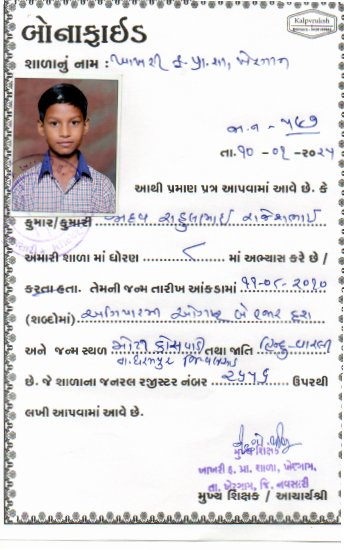 Kalpvruksh
બોનાફાઈડ
શાળાનું નામ :
તા. ૧૦ -૦૧ -૨૦૨૫
આથી પ્રમાણ પત્ર આપવામાં આવે છે. કે
કુમાર/કુમારી રાહુલભાઈ રાજેશભાઈ
અમારી શાળા માં ધોરણ ૮ માં અભ્યાસ કરે છે /
કરતા હતા. તેમની જન્મ તારીખ આંકડામાં ૧૧-૦૮-૨૦૧૦
(શબ્દોમાં) અગિયારમી ઓગષ્ટ બે હજાર દશ
અને જન્મ સ્થળ મોટી તથા જાતિ હિન્દુ-વારલી
તા.ધરમપુર જિ.વલસાડ
છે. જે શાળાના જનરલ રજીસ્ટર નંબર ઉપરથી
લખી આપવામાં આવે છે.
મુખ્ય શિક્ષક
પ્રા. શાળા, ખેરગામ,
તા. ખેરગામ, જિ. નવસારી
મુખ્ય શિક્ષક / આચાર્યશ્રી